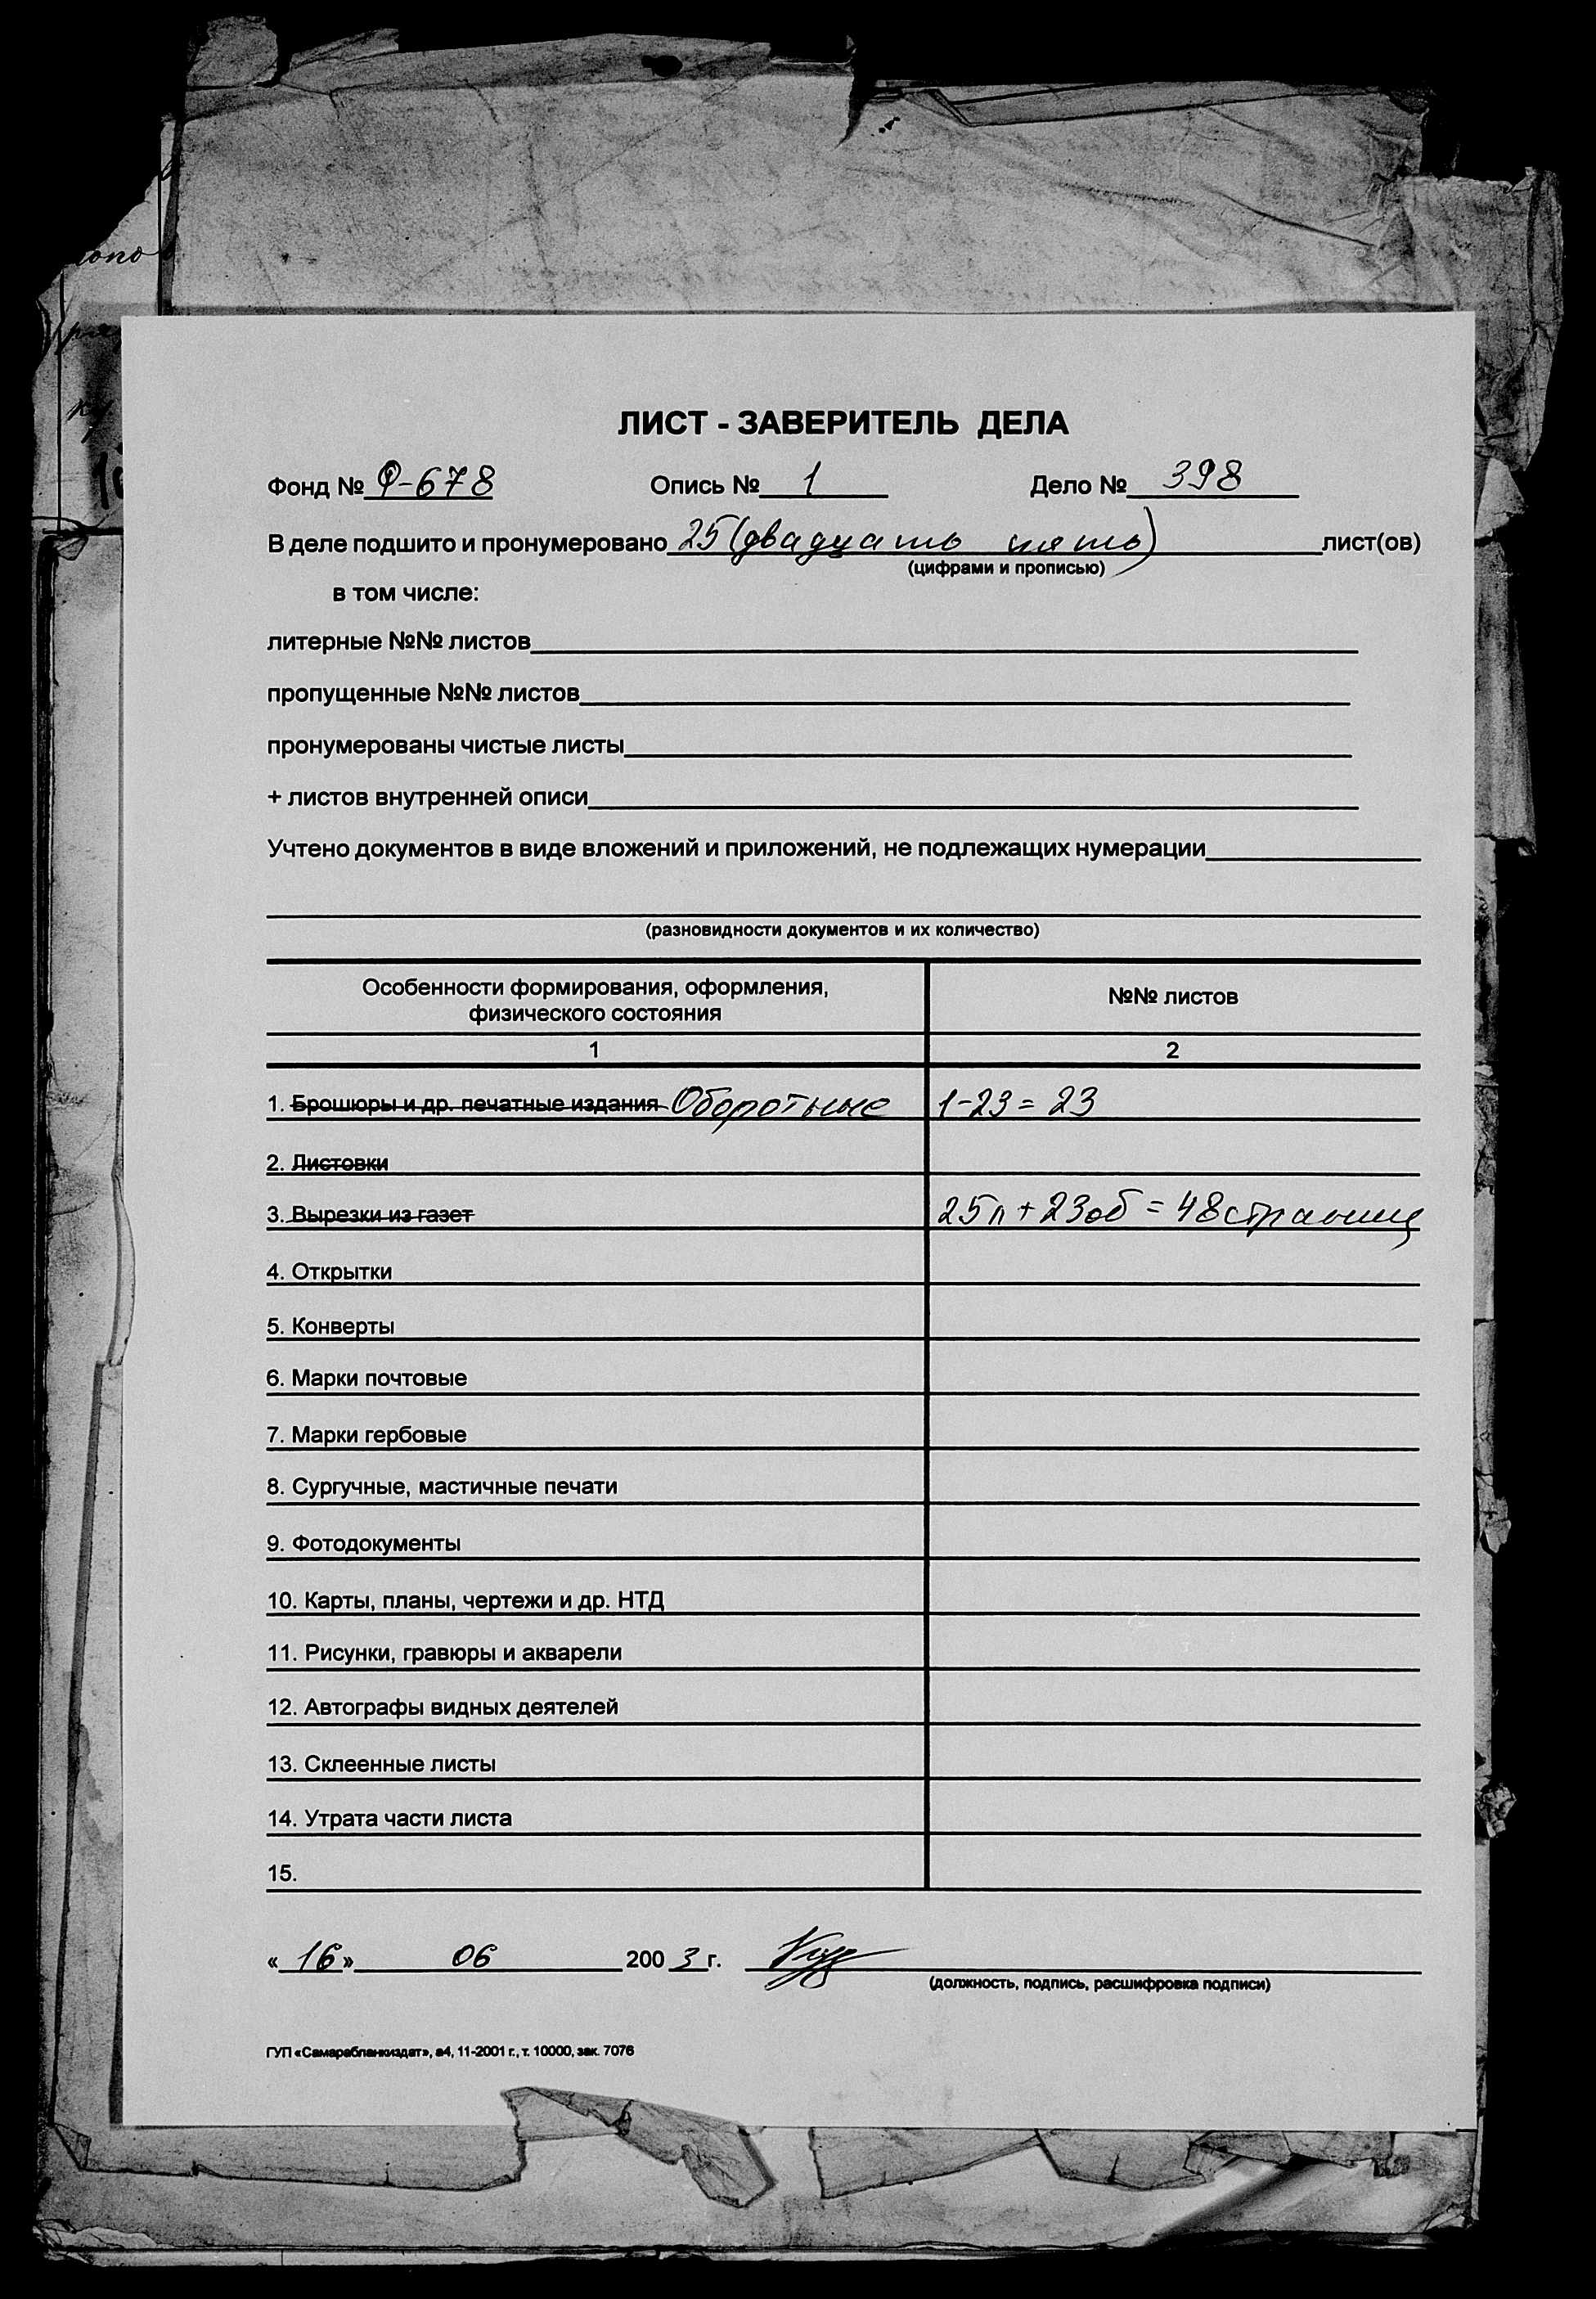 ЛИСТ - ЗАВЕРИТЕЛЬ ДЕЛА
Фонд № Ф-678 Опись № 1 Дело № 398
В деле подшито и пронумеровано 25 (двадцать пять) лист(ов)
(цифрами и прописью)
в том числе:
литерные №№ листов
пропущенные №№ листов
пронумерованы чистые листы
+ листов внутренней описи
Учтено документов в виде вложений и приложений, не подлежащих нумерации
(разновидности документов и их количество)
Особенности формирования, оформления,
физического состояния
№№ листов
1 2
1. Брошюры и др. печатные издания Оборотные 1-23 = 23
2. Листовки
3. Вырезки из газет 25л + 23об = 48 страниц
4. Открытки
5. Конверты
6. Марки почтовые
7. Марки гербовые
8. Сургучные, мастичные печати
9. Фотодокументы
10. Карты, планы, чертежи и др. НТД
11. Рисунки, гравюры и акварели
12. Автографы видных деятелей
13. Склеенные листы
14. Утрата части листа
15.
«16» 06 2003 г.
(должность, подпись, расшифровка подписи)
ГУП «Самарабланкиздат», а4, 11-2001 г., т. 10000, зак. 7076